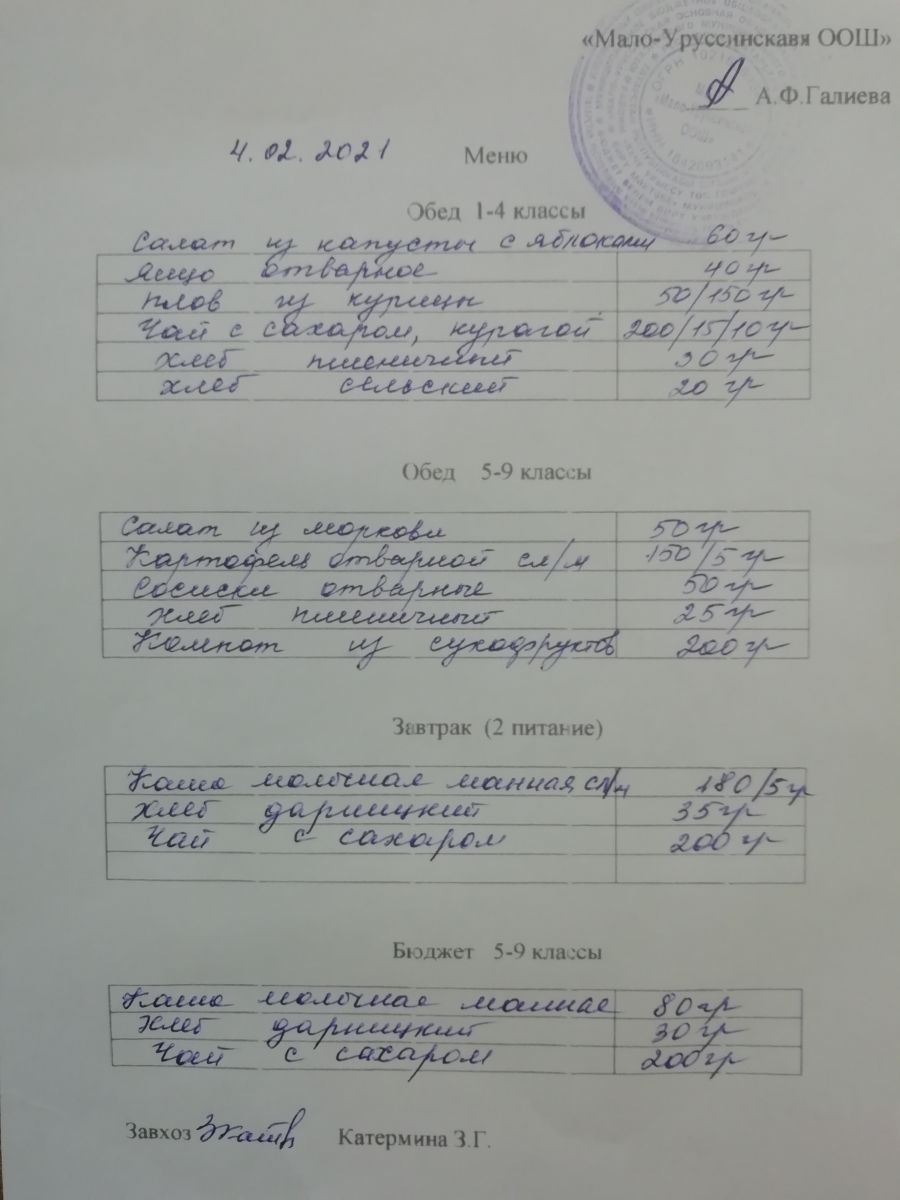 «Мало-Уруссинскавя ООШ»
А.Ф.Галиева
4.02.2021 Меню
Обед 1-4 классы
Салат из капусты с яблоками 60гр
Яйцо отварное 40гр
плов из курицы 50/150гр
Чай с сахаром, курагой 200/15/10гр
хлеб пшеничный 30гр
хлеб сельский 20гр
Обед 5-9 классы
Салат из моркови 50гр
Картофель отварной сл/м 150/5гр
Сосиски отварные 50гр
хлеб пшеничный 25гр
Компот из сухофруктов 200гр
Завтрак (2 питание)
Каша молочная манная сл/м 180/5гр
хлеб дарницкий 35гр
Чай с сахаром 200гр
Бюджет 5-9 классы
Каша молочная манная 80гр
хлеб дарницкий 30гр
Чай с сахаром 200гр
Завхоз Катермина З.Г.